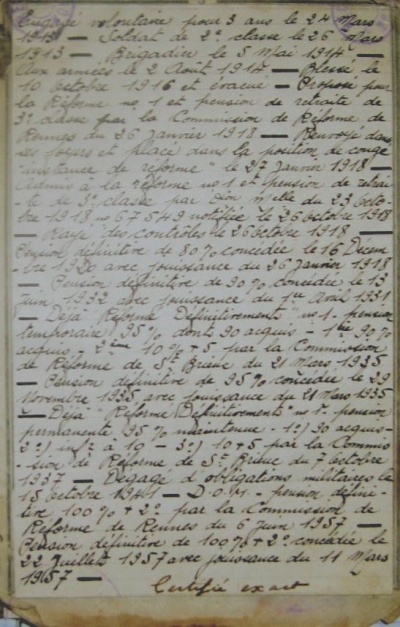 Engagé volontaire pour 3 ans le 24 Mars
1913 — Soldat de 2e classe le 26 Mars
1913 — Brigadier le 5 Mai 1914 —
Aux armées le 2 Août 1914 — Blessé le
10 octobre 1916 et évacué — Proposé pour
la Réforme no 1 et pension de retraite de
3e classe par la Commission de Réforme de
Rennes du 26 Janvier 1918 — Renvoyé dans
ses foyers et placé dans la position de congé
"instance de réforme" le 27 Janvier 1918 —
Admis à la réforme no 1 et pension de retrai-
te de 3e classe par Don Mlle du 23 octo-
bre 1918 no 67549 notifiée le 26 octobre 1918
— Rayé des contrôles le 26 octobre 1918 —
Pension définitive de 80% concédée le 16 Décem-
bre 1920 avec jouissance du 26 Janvier 1918
— Pension définitive de 90% concédée le 13
Juin 1932 avec jouissance du 1er Avril 1931
— Déjà "Réformé Définitivement" no 1 - pension
temporaire 95% dont 90 acquis - 1ère 90%
acquis - 2ème 10% + 5 par la Commission
de Réforme de St Brieuc du 21 Mars 1935
— Pension définitive de 95% concédée le 29
Novembre 1935 avec jouissance du 21 Mars 1935
— Déjà "Réformé Définitivement" no 1 - pension
permanente 95% maintenue - 1o) 90 acquis -
2o) infr à 10 - 3o) 10+5 par la Commis
- sion de Réforme de St Brieuc du 7 octobre
1937 — Dégagé d'obligations militaires le
15 octobre 1941 — D.O.M. - pension défini-
tive 100% + 2° par la Commission de
Réforme de Rennes du 6 Juin 1957 —
Pension définitive de 100% + 2° concédée le
22 Juillet 1957 avec jouissance du 11 Mars
1957 —
Certifié exact